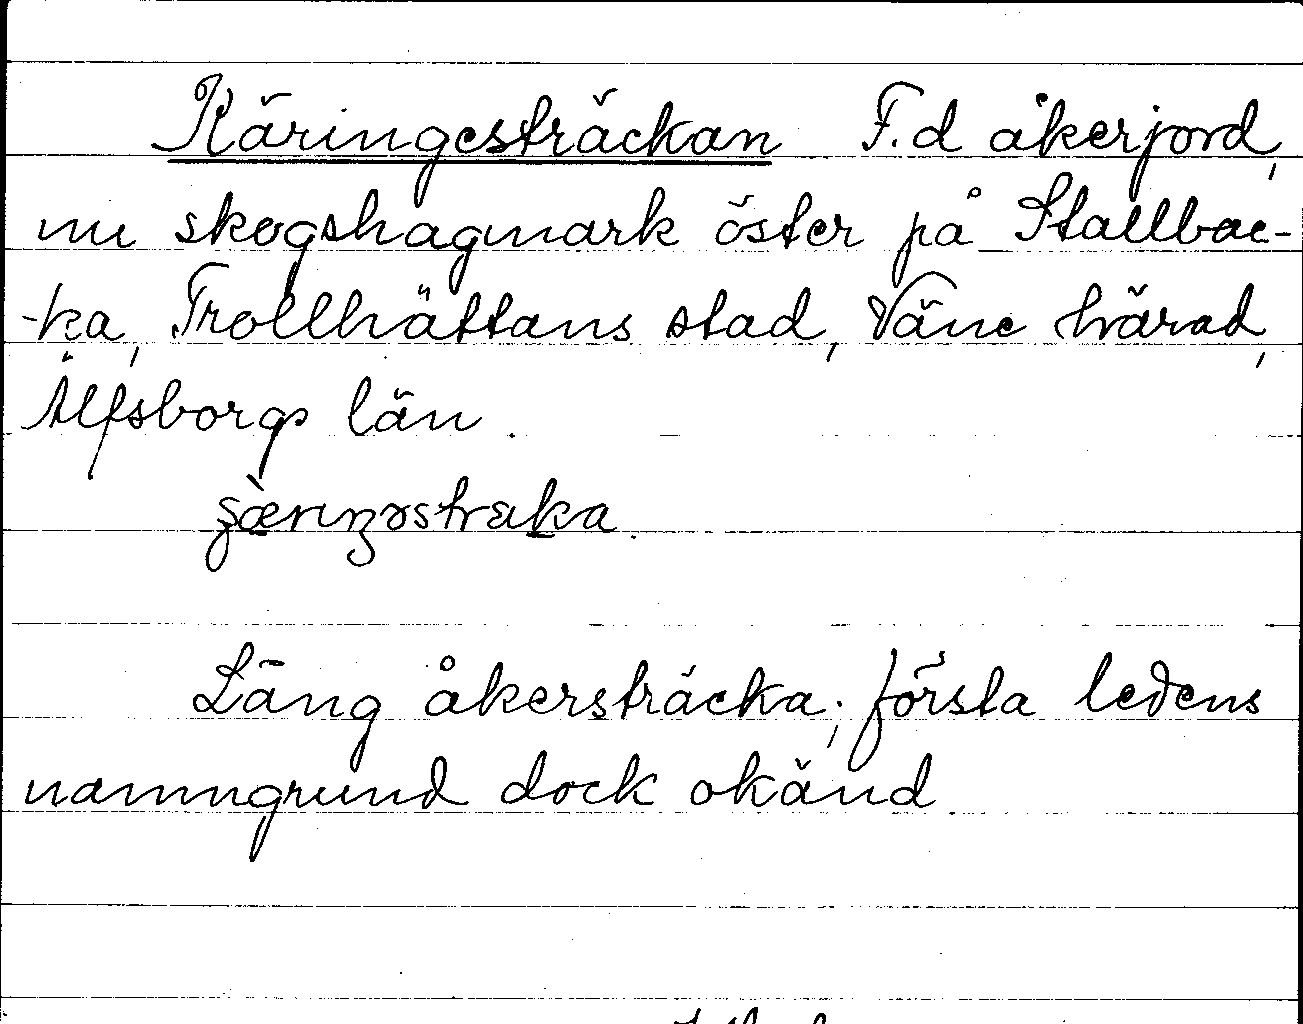 Käringesträckan F.d åkerjord,
nu skogshagmark öster på Stallbac-
-ka, Trollhättans stad, Väne härad,
Älfsborgs län.
Lång åkersträcka; första ledens
namngrund dock okänd